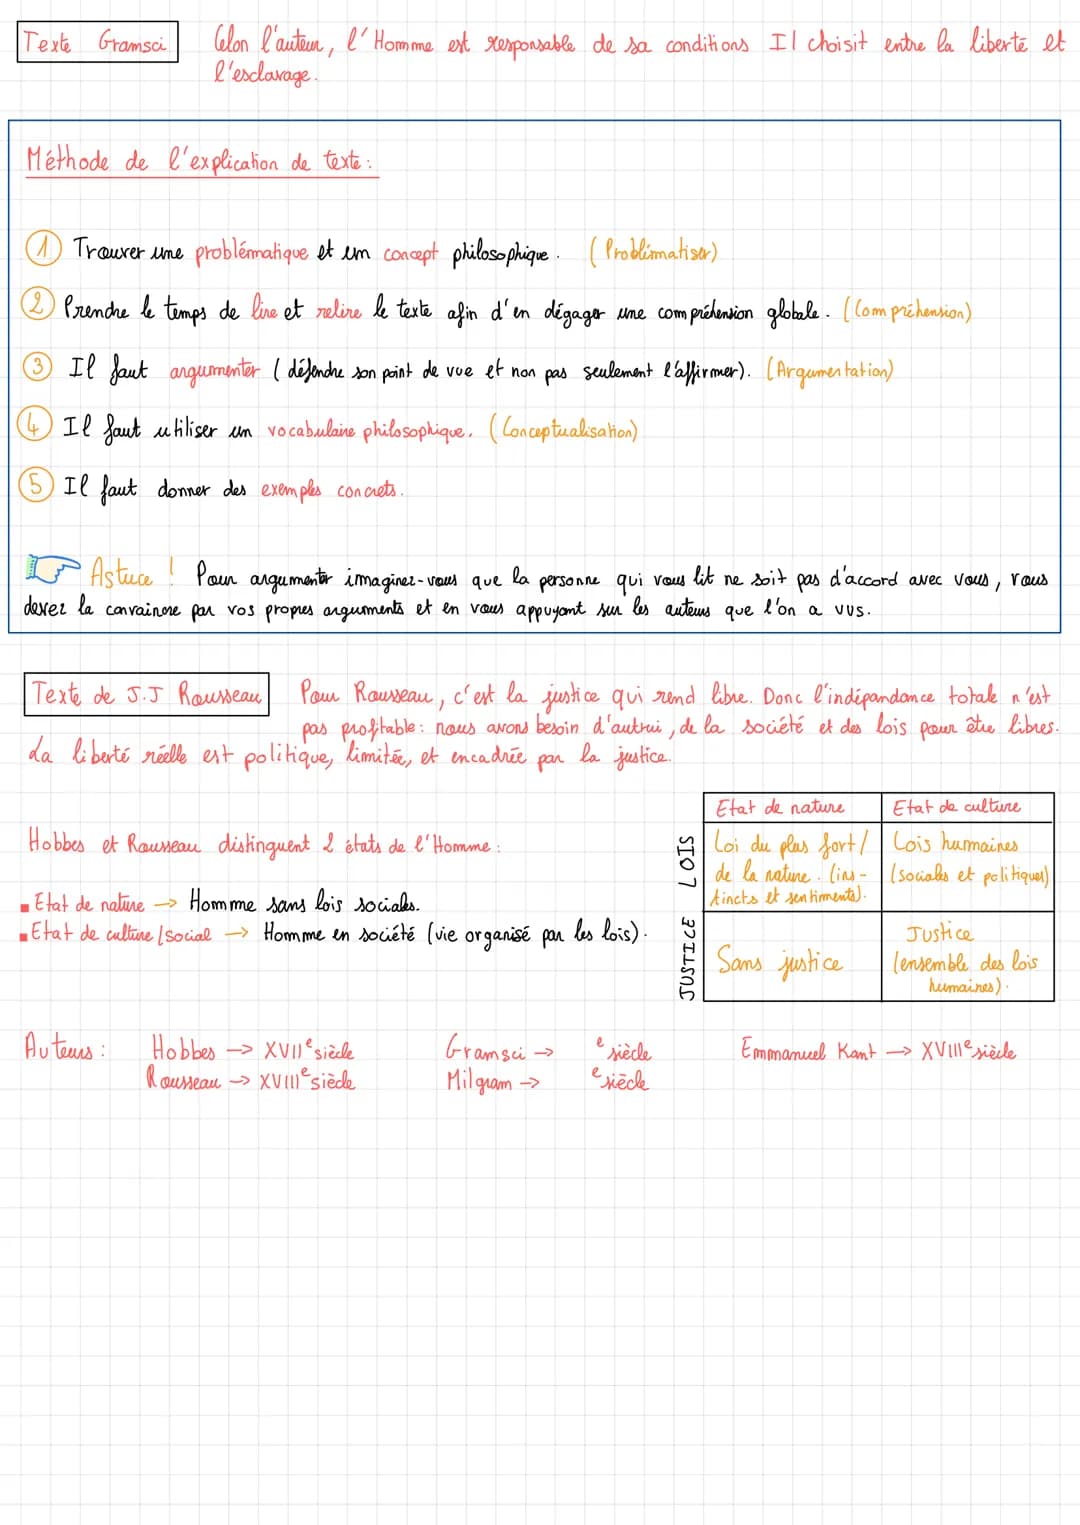 Texte Gramsci
Célon l'auteur, l'Homme est responsable de sa conditions Il choisit entre la liberté et
l'esclavage.
Méthode de l'explication de texte :
1 Trouver une problématique et un concept philosophique. (Problématiser)
2 Prendre le temps de lire et relire le texte afin d'en dégager une compréhension globale. (Compréhension)
3 Il faut argumenter (défendre son point de vue et non pas seulement l'affirmer). (Argumentation)
4 Il faut utiliser un vocabulaire philosophique. (Conceptualisation)
5 Il faut donner des exemples concrets.
Astuce ! Pour argumenter imaginez-vous que la personne qui vous lit ne soit pas d'accord avec vous, vous
devez la convaincre par vos propres arguments et en vous appuyant sur les auteurs que l'on a vus.
Texte de J.J Rousseau
Pour Rousseau, c'est la justice qui rend libre. Donc l'indépendance totale n'est
pas profitable : nous avons besoin d'autrui, de la société et des lois pour être libres.
La liberté réelle est politique, limitée, et encadrée par la justice.
Hobbes et Rousseau distinguent 2 états de l'Homme :
Etat de nature → Homme sans lois sociales.
Etat de culture/social → Homme en société (vie organisé par les lois).
Etat de nature
Etat de culture
LOIS
Loi du plus fort/
de la nature. (ins-
tincts et sentiments).
Lois humaines
(sociales et politiques)
JUSTICE
Sans justice
Justice
(ensemble des lois
humaines).
Auteurs :
Hobbes → XVIIe siècle
Rousseau → XVIIIe siècle
Gramsci → e siècle
Milgram → e siècle
Emmanuel Kant → XVIIIe siècle